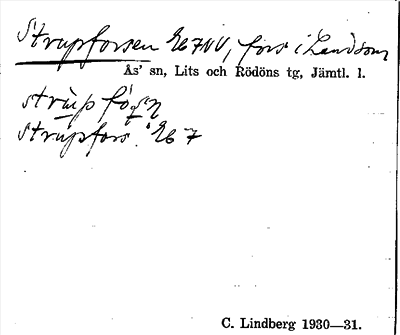 Strupforsen Eb7NV, fors i Landsom
Ås' sn, Lits och Rödöns tg, Jämtl. l.
strùp fǻṣn
Strupfors. Eb 7
C. Lindberg 1930—31.